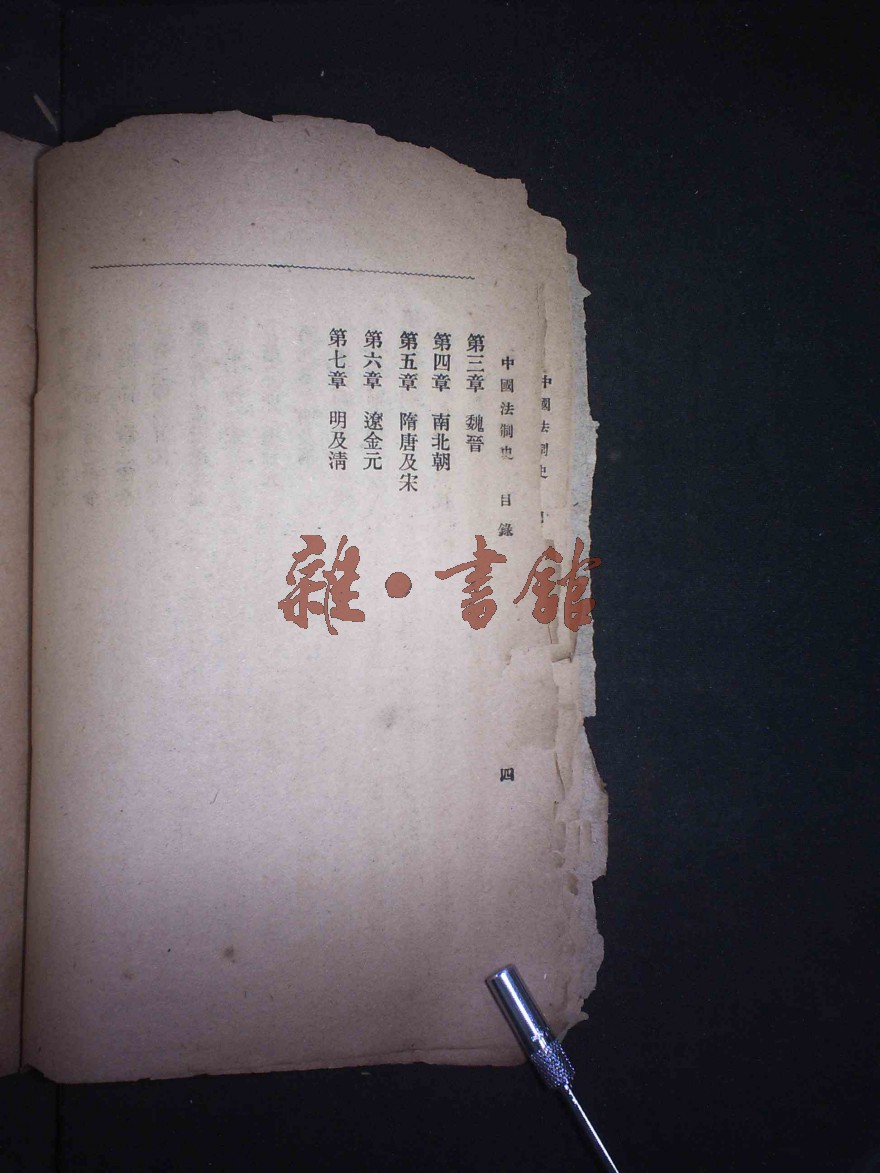 中國法制史
中國法制史 目錄 四
第三章 魏晉
第四章 南北朝
第五章 隋唐及宋
第六章 遼金元
第七章 明及淸
雜·書館